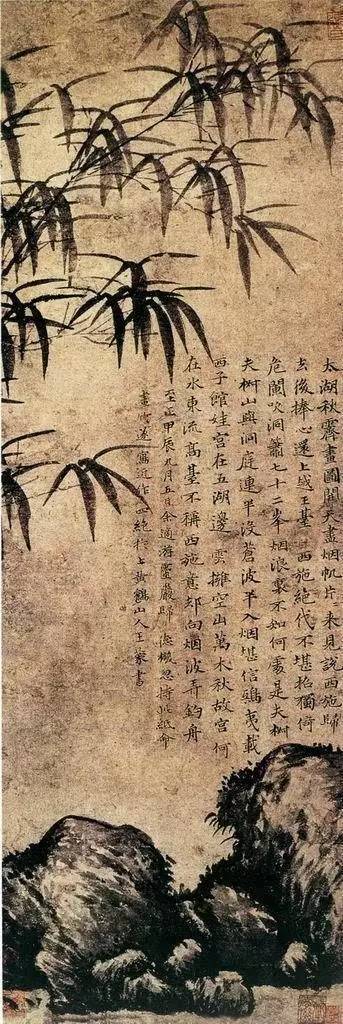 太湖秋霽畫圖開天盡烟帆片片来見説西施歸
去後捧心還上越王臺西施絶代不堪招獨倚
危闌吹洞簫七十二峯烟浪裏不知何處是夫椒
夫椒山與洞庭連半沒蒼波半入烟堪信鴟夷載
西子館娃宫在五湖邊雲擁空山萬木秋故宫何
在水東流高臺不稱西施意却向烟波弄釣舟
至正甲辰九月五日余適游靈巖歸德機忽持此紙命
畫竹遂寫近作四絶於上黄鶴山人王蒙書